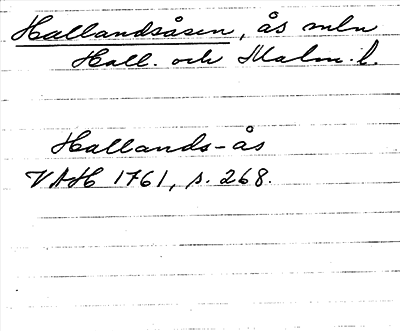 Hallandsåsen, ås mln
Hall. och Malm. l.
Hallands-ås
VAH 1761, s. 268.